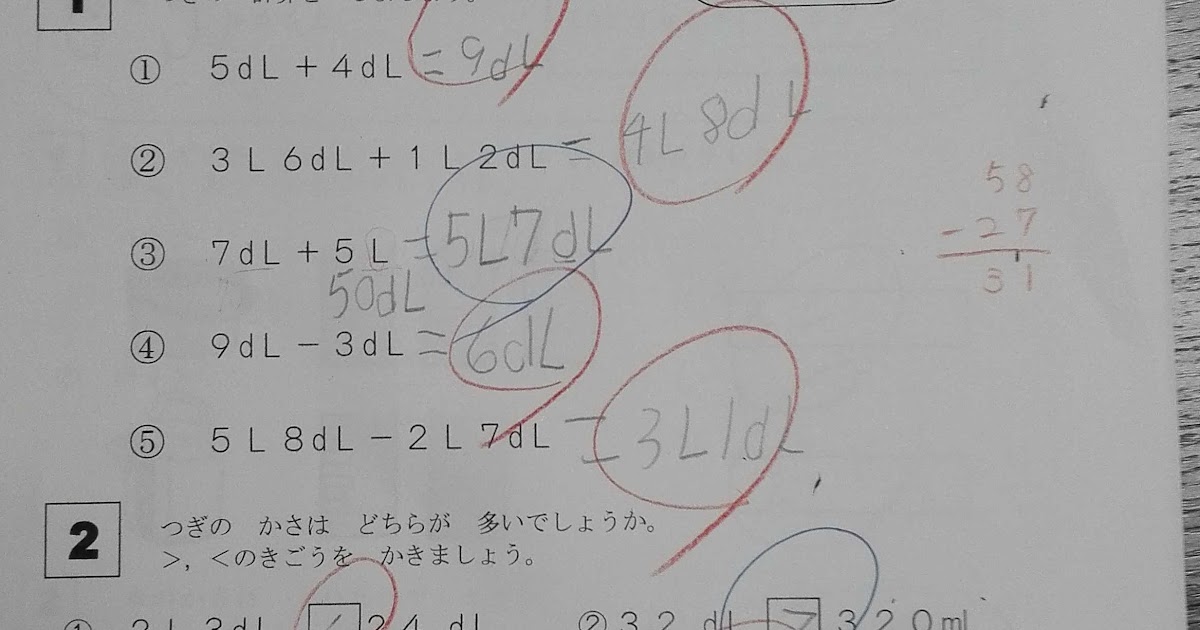 1
① 5dL + 4dL = 9dL
② 3L 6dL + 1L 2dL = 4L 8dL
③ 7dL + 5L = 5L7dL
50dL
④ 9dL - 3dL = 6dL
⑤ 5L 8dL - 2L 7dL = 3L1dL
58
-27
31
2 つぎの かさは どちらが 多いでしょうか。
>, <のきごうを かきましょう。
① 2L 3dL < 24 dL ② 32 dL > 320ml